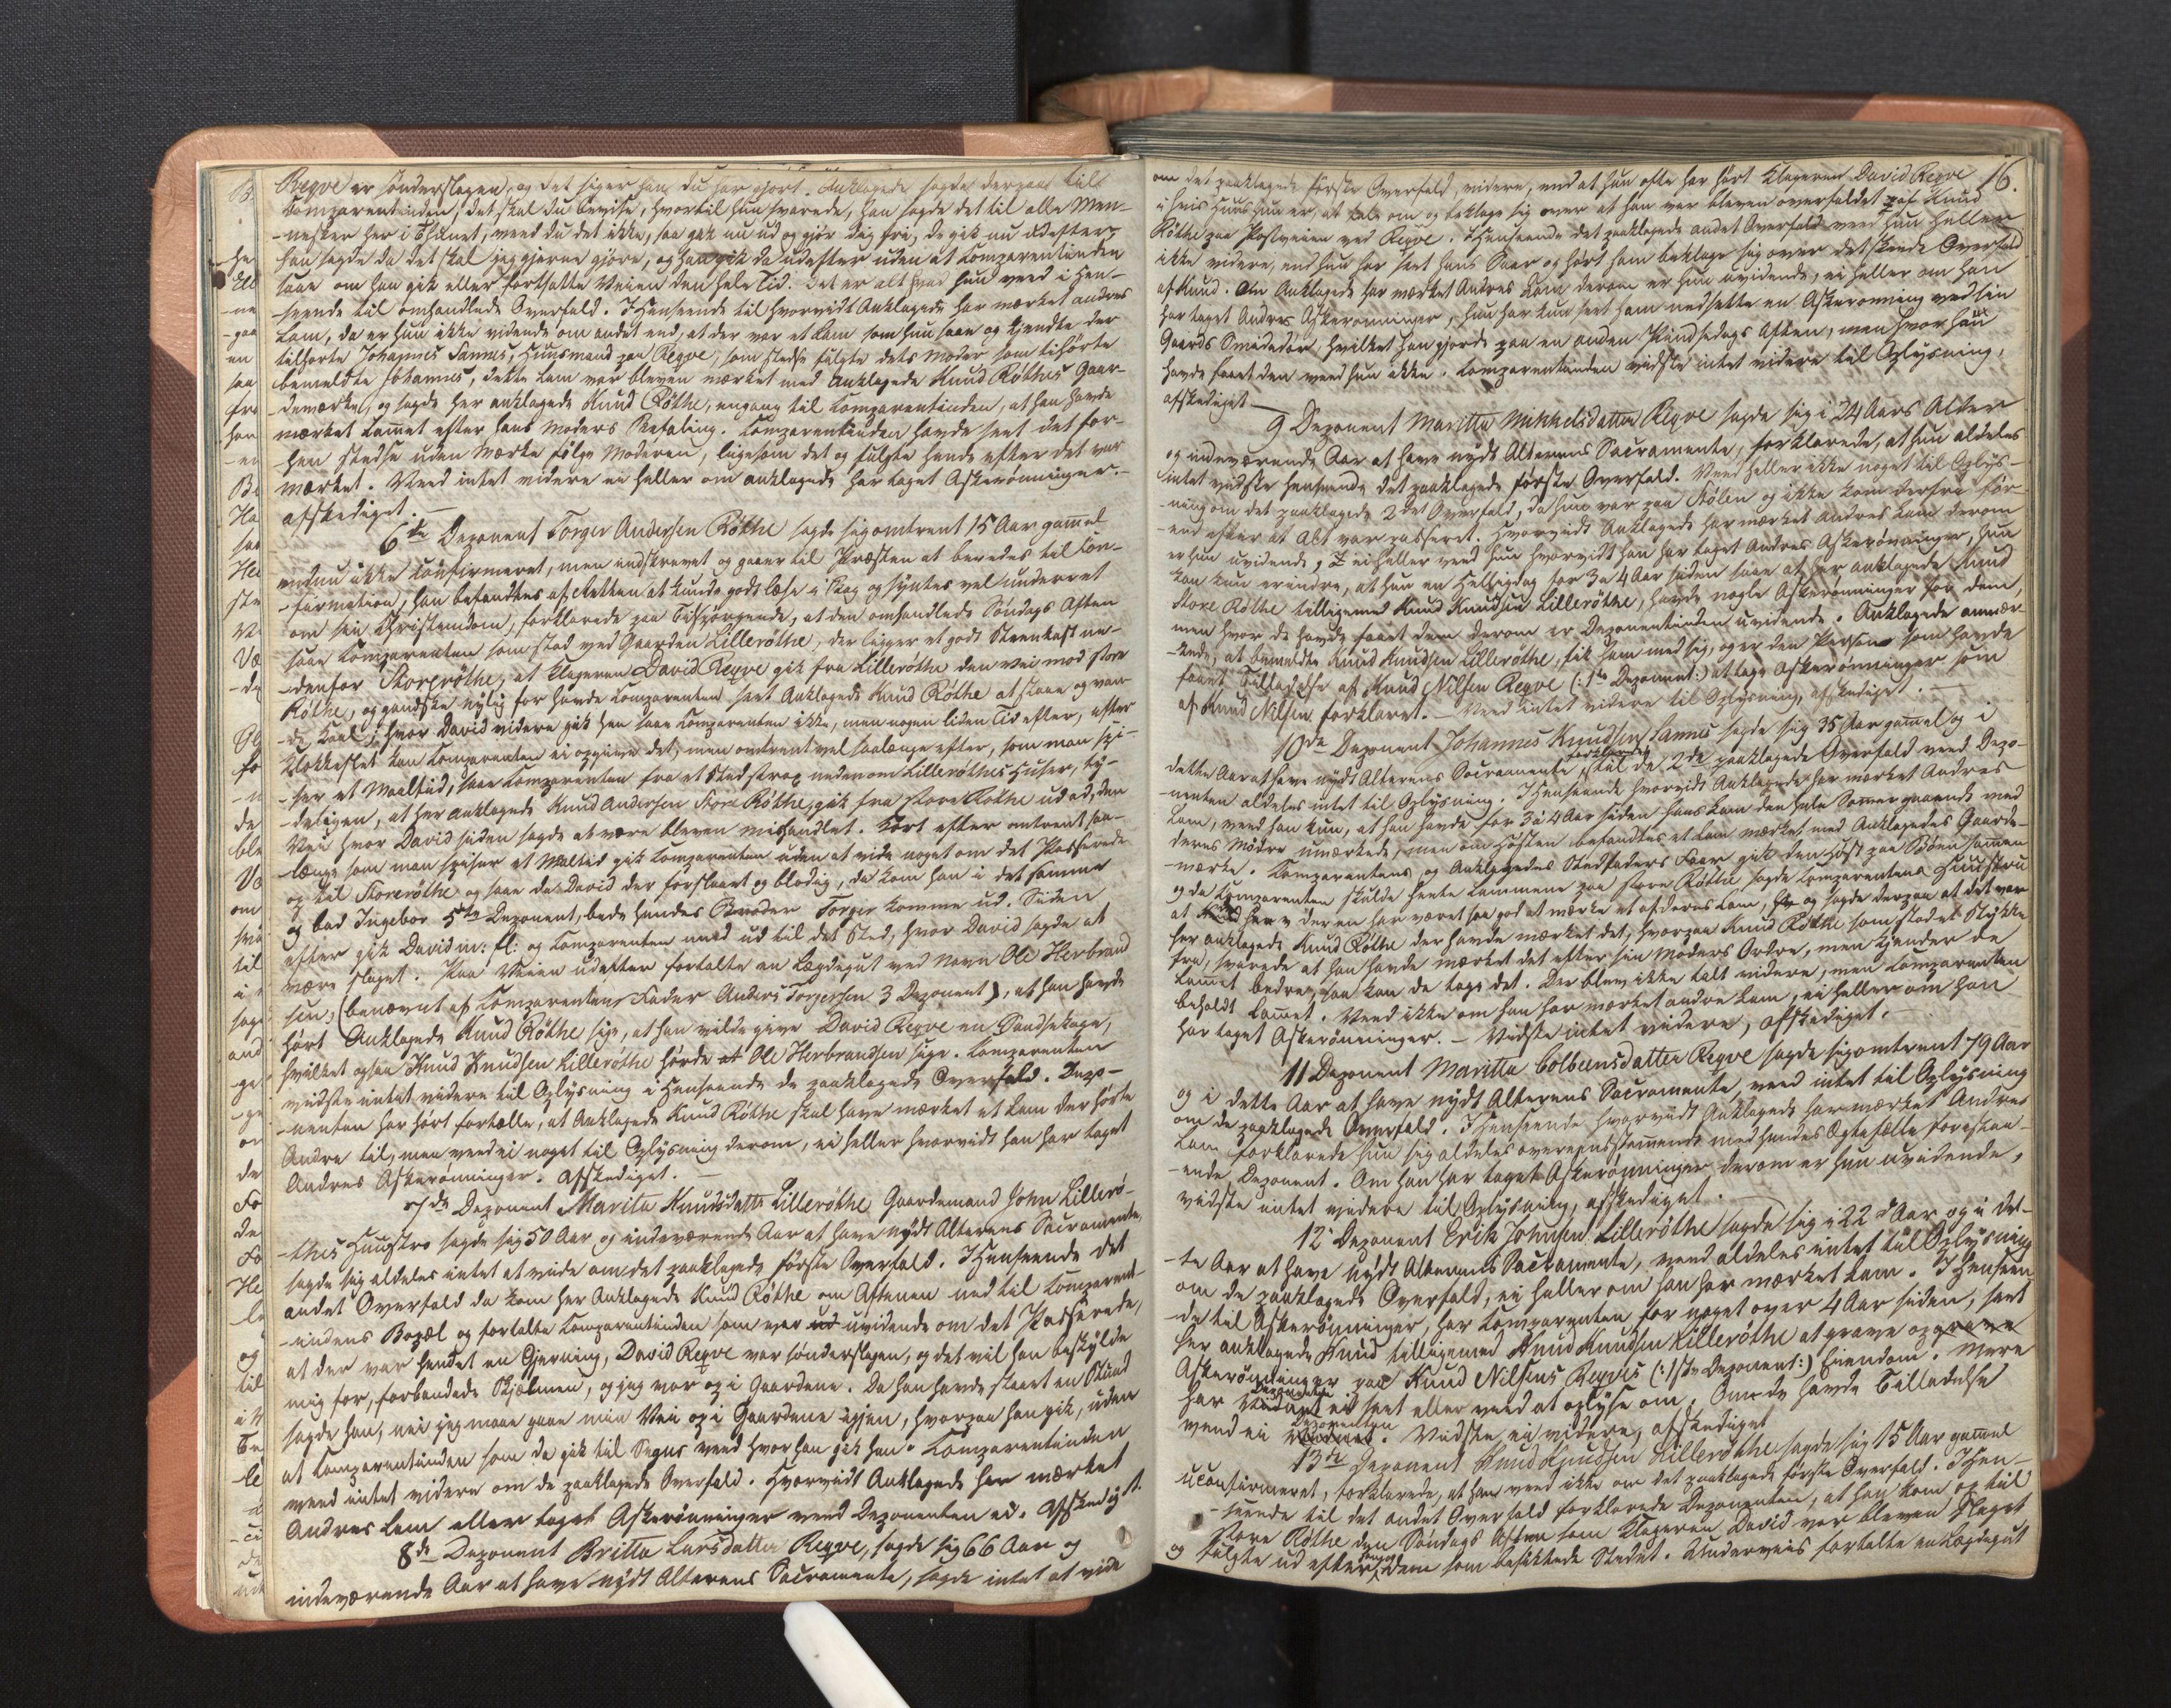 Reqve er sønderslagen, og det siger han du har gjort. Anklagede sagde derpaa til
Comparentinden, det skal du bevise, hvortil hun svarede, han sagde det til alle Men-
-nesker her i Thunet, veed du det ikke, saa gak nu ud og gjør dig fri, de gik nu udefter,
han sagde da det skal jeg gjerne gjøre, og han gik da udefter uden at Comparentinden
saae om han gik eller fortsatte Veien den hele Tid. Det er alt hvad hun veed i Hen-
-seende til omhandlede Overfald. I Henseende til hvorvidt Anklagede har mærket andres
Lam, da er hun ikke vidende om andet end, at der var et Lam som hun saae og kjendte der
tilhørte Johannes Sannes, Huusmand paa Reqve, som stedse fulgte dets Moder som tilhørte
bemeldte Johannes, dette Lam var bleven mærket med Anklagede Knud Røthes Gaar-
demærke, og sagde her anklagede Knud Røthe, engang til Comparentinden, at han havde
mærket Lammet efter hans Moders Befaling. Comparentinden havde seet det for-
-hen stedse uden Mærke følge Moderen, ligesom det og fulgte hende efter det var
mærket. Veed intet videre ei heller om anklagede har taget Askerønninger.
afskediget. —
6te Deponent Torger Andersen Røthe sagde sig omtrent 15 Aar gammel
endnu ikke Confirmeret, men indskrevet og gaaer til Præsten at beredes til Con-
-firmation, han befandtes af Retten at kunde godt læse i Bog og syntes vel underret
om sin Christendom, forklarede paa Tilspørgende, at den omhandlede Søndags Aften
saae Comparenten som stod ved Gaarden Lillerøthe, der ligger et godt Steenkast ne-
-denfor Storerøthe, at Klageren David Reqve gik fra Lillerøthe den Vei mod store
Røthe, og gandske nylig før havde Comparenten seet Anklagede Knud Røthe at staae og van-
de Kaal, hvor David videre gik hen saae Comparenten ikke, men nogen liden Tid efter, efter
Klokkeslet kan Comparenten ei opgive det, men omtrent vel saalænge efter, som man spi-
-ser et Maaltid, saae Comparenten fra et Sted strax nedenom Lillerøthes Huser, ty-
-deligen, at her anklagede Knud Andersen Store Røthe, gik fra store Røthe ud ad, den
Vei hvor David siden sagde at være bleven mishandlet. Kort efter omtrent saa-
længe som man spiser et Maltid gik Comparenten uden at vide noget om det Passerede
op til Storerøthe og saae da David der forslaaet og blodig, da kom han i det samme
og bad Ingebor 5te Deponent, bede hendes Broder Torger komme ud. Siden
efter gik David m: fl: og Comparenten med ud til det Sted, hvor David sagde at
være slaget. Paa Veien udefter fortalte en Lægdegut ved Navn Ole Herbrand
sen, (benævnt af Comparentens Fader Anders Torgersen 3 Deponent), at han havde
hørt Anklagede Knud Røthe sige, at han vilde give David Reqve en Dandsekage,
hvilket ogsaa Knud Knudsen Lillerøthe hørde at Ole Herbrandsen sige. Comparenten
vidste intet videre til Oplysning i Henseende de paaklagede Overfald. Depo-
-nenten har hørt fortælle, at Anklagede Knud Røthe skal have mærket et Lam der hørte
Andre til, men veed ei noget til Oplysning derom, ei heller hvorvidt han har taget
Andres Askerønninger. Afskediget. —
7de Deponent Marita Knudsdatter Lillerøthe Gaardemand John Lillerø-
-thes Huustro sagde sig 50 Aar og indeværende Aar at have nydt Alterens Sacramente,
sagde sig aldeles intet at vide om det paaklagede første Overfald. I Henseende det
andet Overfald da kom her Anklagede Knud Røthe om Aftenen ned til Comparent-
-indens Bopæl og fortalte Comparentinden som var uvidende om det Passerede,
at der var hendet en Gjerning, David Reqve var sønderslagen, og det vil han beskylde
mig for, forbandede Skjælmen, og jeg var op i Gaardene. Da han havde staaet en Stund
sagde han, nei jeg maae gaae min Vei op i Gaardene igjen, hvorpaa han gik, uden
at Comparentinden som da gik til Sengs veed hvor han gik hen. Comparentinden
veed intet videre om de paaklagede Overfald. Hvorvidt Anklagede har mærket
Andres Lam eller taget Askerønninger veed Deponenten ei. Afskediget.
8de Deponent Britta Larsdatter Reqve, sagde sig 66 Aar og
indeværende Aar at have nydt Alterens Sacramente, sagde intet at vide
16.
om det paaklagede første Overfald, videre, end at hun ofte har hørt Klageren David Reqve
i hvis Huus hun er, at tale om og beklage sig over at han var bleven overfaldet af Knud
Røthe paa Postveien ved Reqve. I Henseende det paaklagede andet Overfald veed hun heller
ikke videre, end hun har seet hans Saar og hørt ham beklage sig over det skeede Overfald
af Knud. Om Anklagede har mærket Andres Lam derom er hun uvidende, ei heller om han
har taget Andres Askerønninger, hun har kun seet ham nedsætte en Askerønning ved sin
Gaards Smedadør, hvilket han gjorde paa en anden Pindsedags Aften, men hvor han
havde faaet den veed hun ikke. Comparentinden vidste intet videre til Oplysning,
afskediget —
9 Deponent Maritta Mikkelsdatter Reqve sagde sig i 24 Aars Alder
og indeværende Aar at have nydt Alterens Sacramente, forklarede, at hun aldeles
intet vidste henseende det paaklagede første Overfald. Veed heller ikke noget til Oplys-
-ning om det paaklagede 2det Overfald, da hun var paa Stølen og ikke kom derfra før-
-end efter at Alt var passeret. Hvorvidt Anklagede har mærket Andres Lam derom
er hun uvidende, ei heller veed hun hvorvidt han har taget Andres Askerønninger, hun
kan kun erindre, at hun en Helligdag for 3 a 4 Aar siden saae at her anklagede Knud
Store Røthe tilligemed Knud Knudsen Lillerøthe, havde nogle Askerønninger for dem,
men hvor de havde faaet dem derom er Deponentinden uvidende. Anklagede anmær-
-kede, at bemeldte Knud Knudsen Lillerøthe, fik ham med sig, og er den Person som havde
faaet Tilladelse af Knud Nilsen Reqve (: 1te Deponent :) at tage Askerønninger som
af Knud Nilsen forklaret. — Veed intet videre til Oplysning, afskediget. —
10de Deponent Johannes Knudsen Sannes sagde sig 35 Aar gammel og i
dette Aar at have nydt Alterens Sacramente, forklarede, til de 2de paaklagede Overfald veed Depo-
-nenten aldeles intet til Oplysning. I Henseende hvorvidt Anklagede har mærket Andres
Lam, veed han kun, at han havde for 3 a 4 Aar siden hans Lam den hele Sommer gaaende med
deres Mødre umærkede, men om Høsten befandtes et Lam mærket med Anklagedes Gaarde-
-mærke. Comparentens og Anklagedes Stedfaders Faar gik den Høst paa Bøen sammen
og da Comparenten skulde hente Lammene paa store Røthe, sagde Comparentens Huustru
at der en har været saa god at mærke et af deres Lam, og sagde derpaa at det var
her anklagede Knud Røthe der havde mærket det, hvorpaa Knud Røthe som stod et Stykke
fra, svarede at han havde mærket det efter sin Moders Ordre, men kjender de
Lammet bedre, saa kan de tage det. Der blev ikke talt videre, men Comparenten
beholdt Lammet. Veed ikke om han har mærket andre Lam, ei heller om han
har taget Askerønninger. — Vidste intet videre, afskediget. —
11 Deponent Maritta Colbeensdatter Reqve sagde sig omtrent 79 Aar
og i dette Aar at have nydt Alterens Sacramente, veed intet til Oplysning
om de paaklagede Overfald. I Henseende hvorvidt Anklagede har mærket Andres
Lam forklarede hun sig aldeles overeensstemmende med hendes Ægtefælle foreståa-
-ende Deponent. Om han har taget Askerønninger derom er hun uvidende,
vidste intet videre til Oplysning, afskediget. —
12 Deponent Erik Johnsen Lillerøthe sagde sig i 22 Aar og i det-
-te Aar at have nydt Alterens Sacramente, veed aldeles intet til Oplysning
om de paaklagede Overfald, ei heller om han har mærket Lam. I Henseen-
-de til Askerønninger, har Comparenten for noget over 4 Aar siden, seet
her anklagede Knud tilligemed Knud Knudsen Lillerøthe at grave op
Askerønninger paa Knud Nilsens Reqves (: 1ste Deponent :) Eiendom. Mere
har Deponenten ei seet eller veed at oplyse om. Om de havde Tilladelse
veed ei Deponenten. Vidste ei videre, afskediget
13de Deponent Knud Knudsen Lillerøthe sagde sig 15 Aar gammel
uconfirmeret, forklarede, at han veed ikke om det paaklagede første Overfald. I Hen-
-seende til det andet Overfald forklarede Deponenten, at han kom op til
store Røthe den Søndags Aften som Klageren David var bleven slaget
og fulgte ud efter dem som besigtede Stedet. Underveis fortalte en Lægdegut